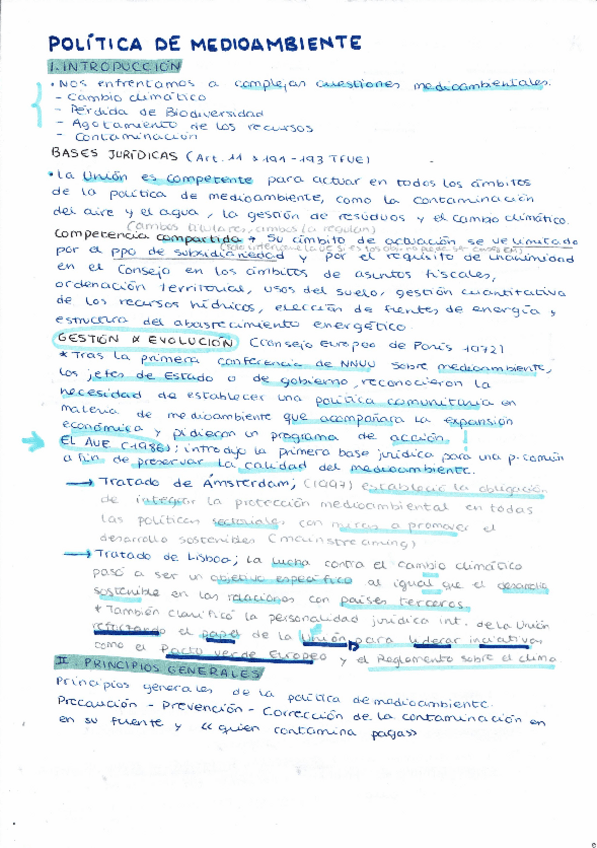 POLÍTICA DE MEDIOAMBIENTE
I. INTRODUCCIÓN
• Nos enfrentamos a complejas cuestiones medioambientales.
- Cambio climático
- Pérdida de Biodiversidad
- Agotamiento de los recursos
- Contaminación
BASES JURÍDICAS (Art. 11 y 191-193 TFUE)
• La Unión es competente para actuar en todos los ámbitos
de la política de medioambiente, como la contaminación
del aire y el agua, la gestión de residuos y el cambio climático.
(Ambos titulares, ambos la regulan)
Competencia compartida * Su ámbito de actuación se ve limitado
por el ppo de subsidiariedad y por el requisito de unanimidad
en el Consejo en los ámbitos de asuntos fiscales,
ordenación territorial, usos del suelo, gestión cuantitativa
de los recursos hídricos, elección de fuentes de energía y
estructura del abastecimiento energético.
GESTIÓN & EVOLUCIÓN (Consejo Europeo de París 1972)
* Tras la primera conferencia de NNUU sobre medioambiente,
los jefes de Estado o de gobierno, reconocieron la
necesidad de establecer una política comunitaria en
materia de medioambiente que acompañara la expansión
económica y pidieron un programa de acción.
→ EL AUE (1986); introdujo la primera base jurídica para una p. común
a fin de preservar la calidad del medioambiente.
→ Tratado de Ámsterdam; (1997) estableció la obligación
de integrar la protección medioambiental en todas
las políticas sectoriales con miras a promover el
desarrollo sostenible (mainstreaming)
→ Tratado de Lisboa; la lucha contra el cambio climático
pasó a ser un objetivo específico al igual que el desarrollo
sostenible en las relaciones con países terceros.
* También clarificó la personalidad jurídica int. de la Unión
reforzando el papel de la Unión para liderar iniciativas
como el Pacto verde Europeo y el Reglamento sobre el clima.
II. PRINCIPIOS GENERALES
Principios generales de la política de medioambiente.
Precaución - Prevención - Corrección de la contaminación en
en su fuente y «quien contamina paga»